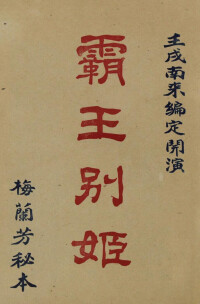 壬戌南来編定開演
霸王别姬
梅蘭芳秘本